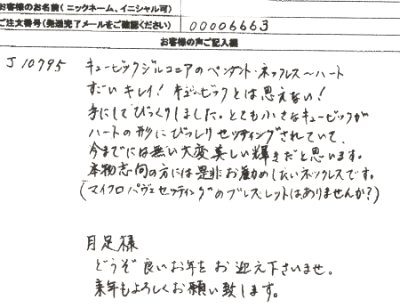 お客様のお名前(ニックネーム、イニシャル可)
ご注文番号(発送完了メールをご確認ください) 00006663
お客様の声ご記入欄
J10795 キュービックジルコニアのペンダント・ネックレス〜ハート
すごいキレイ!キュービックとは思えない!
手にしてびっくりしました。とても小さなキュービックが
ハートの形にびっしりセッティングされていて、
今までには無い大変美しい輝きだと思います。
本物志向の方には是非お勧めしたいネックレスです。
(マイクロパヴェセッティングのブレスレットはありませんか?)
月足様
どうぞ良いお年をお迎え下さいませ。
来年もよろしくお願い致します。